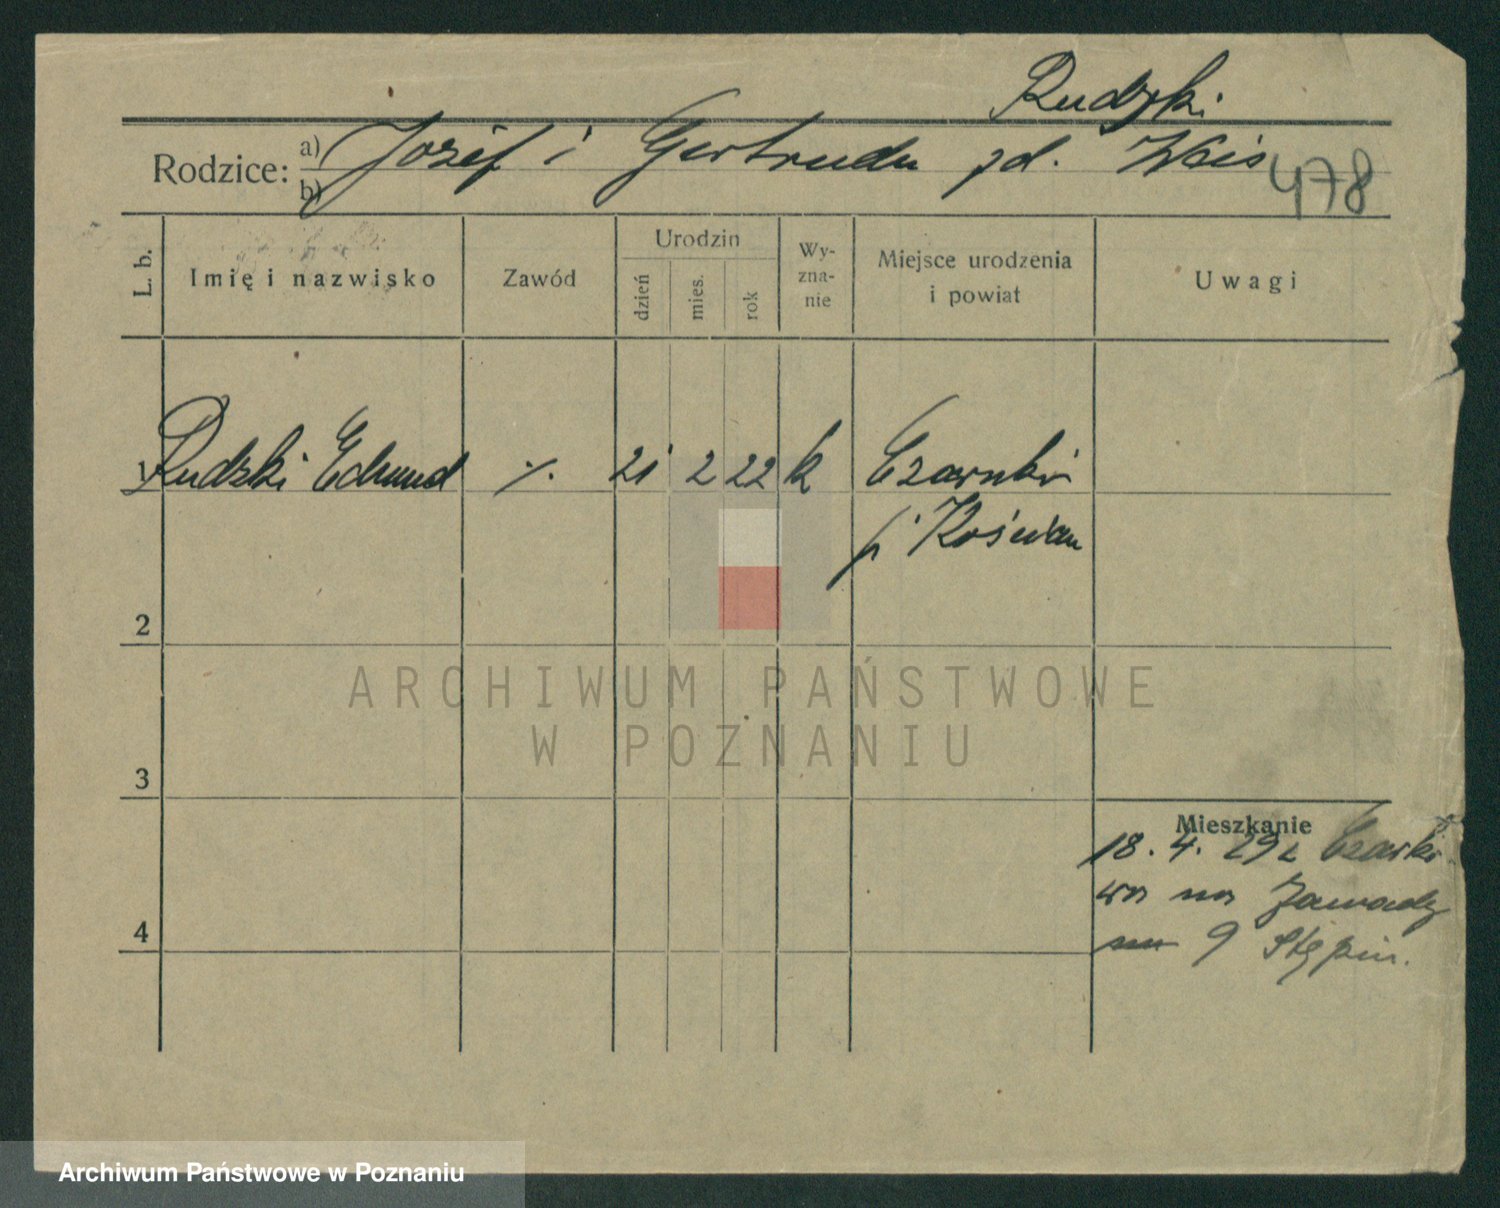 Rudzki
Rodzice: a) Józef i Gertruda zd. Weis
b)
478
L. b.
Imię i nazwisko
Zawód
Urodzin
dzień
mies.
rok
Wy-
zna-
nie
Miejsce urodzenia
i powiat
Uwagi
1 Rudzki Edmund ./. 21 2 22 k Czarnków
p. Kościan
2
3
4
Mieszkanie
18. 4. 29 z Czarko
wa na Zawady
9 Stępin.
ARCHIWUM PAŃSTWOWE
W POZNANIU
Archiwum Państwowe w Poznaniu